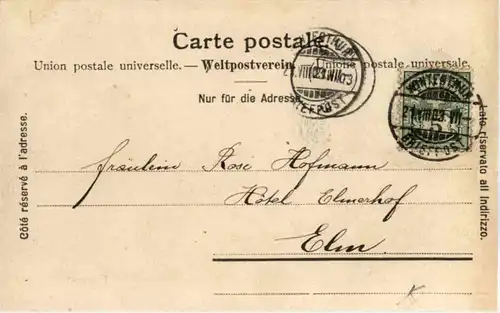 Carte postale.
Union postale universelle. — Weltpostverein. — Unione postale universale.
Nur für die Adresse.
Côté réservé à l'adresse.
Lato riservato all indirizzo.
WINTERTHUR
21.VII.03
BRIEFPOST
5
Fräulein Rosi Hofmann
Hôtel Elmerhof
Elm